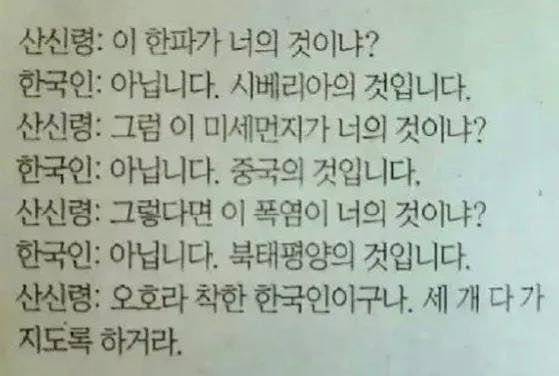 산신령: 이 한파가 너의 것이냐?
한국인: 아닙니다. 시베리아의 것입니다.
산신령: 그럼 이 미세먼지가 너의 것이냐?
한국인: 아닙니다. 중국의 것입니다.
산신령: 그렇다면 이 폭염이 너의 것이냐?
한국인: 아닙니다. 북태평양의 것입니다.
산신령: 오호라 착한 한국인이구나. 세 개 다 가
지도록 하거라.